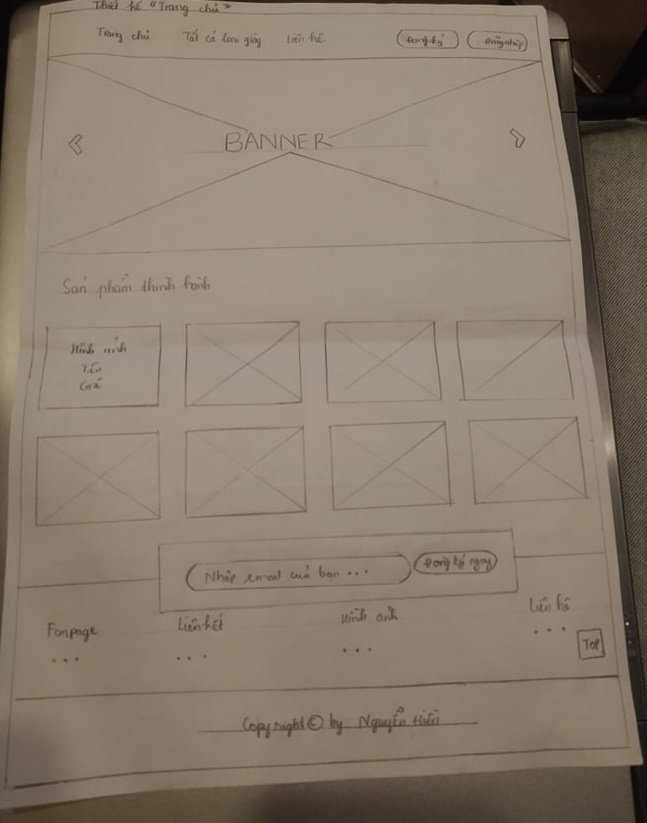 Thiết kế "Trang chủ"
Trang chủ Tất cả loại giày Liên hệ Đăng ký Đăng nhập
BANNER
Sản phẩm thịnh hành
Hình ảnh
Tên
Giá
Nhập email của bạn ... Đăng ký ngay
Fanpage Liên kết Hình ảnh Liên hệ
... ... ... ...
TOP
Copyright © by Nguyễn Hiền